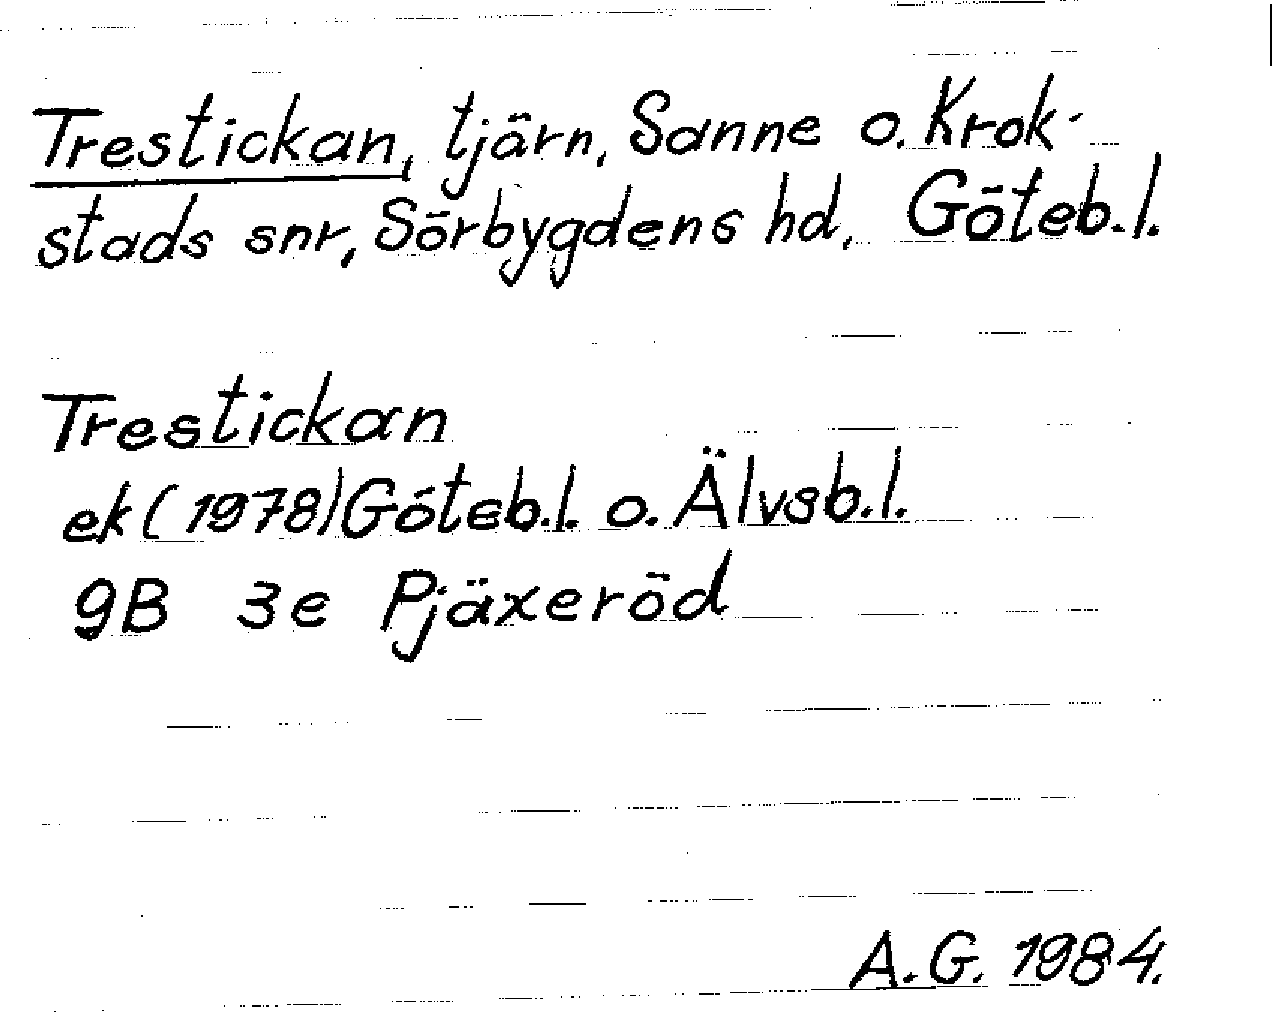 Trestickan, tjärn, Sanne o. Krok-
stads snr, Sörbygdens hd, Göteb.l.
Trestickan
ek (1978) Göteb.l. o. Älvsb.l.
9B 3e Pjäxeröd
A.G. 1984.